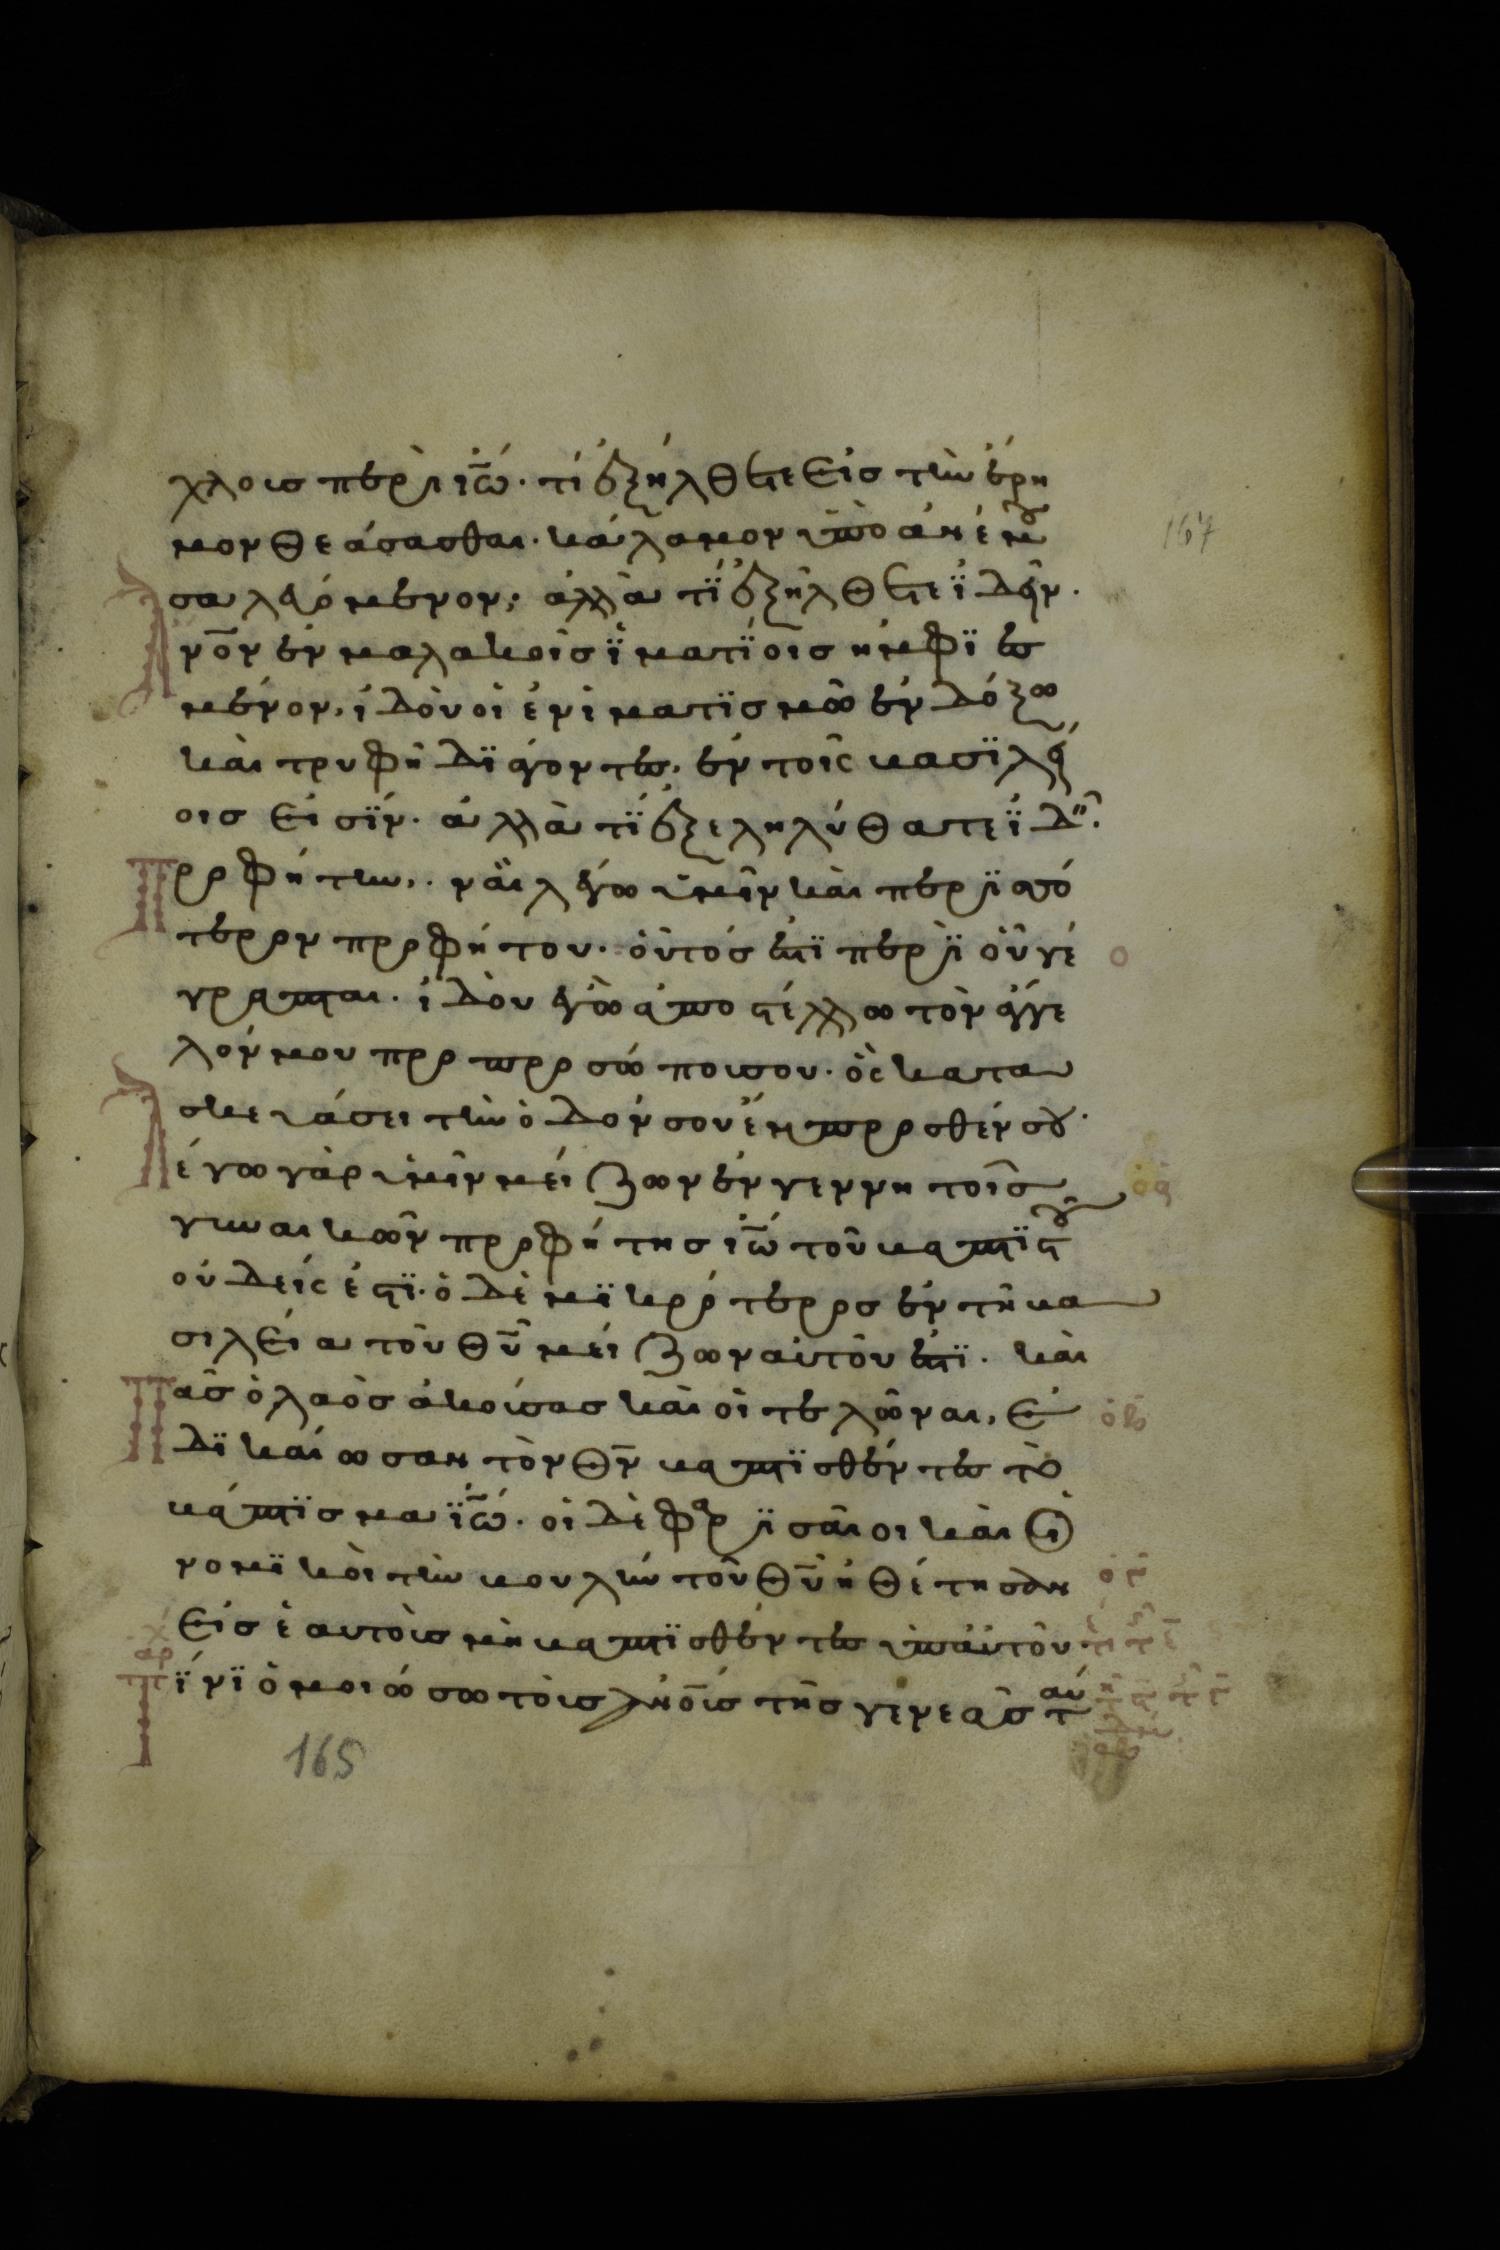 χλοις περὶ ἰω̅· τί ἐξήλθετε εἰς τὴν ἔρη
μον θεάσασθαι· κάλαμον ὑπὸ ἀνέμου
σαλευόμενον; ἀλλὰ τί ἐξήλθετε ἰδεῖν·
Α̅νο̅ν ἐν μαλακοῖς ἱματίοις ἠμφιεσ
μένον, ἰδοὺ οἱ ἐν ἱματισμῶ ἐνδόξω
καὶ τρυφῆ διάγοντες, ἐν τοῖς βασιλεί
οις εἰσίν· ἀλλὰ τί ἐξεληλύθατε ἰδεῖν·
Προφήτην,· ναὶ λέγω ὑμῖν καὶ περισσό
τερον προφήτου· οὗτός ἐστι περὶ οὗ γέ
γραπται· ἰδοὺ ἐγὼ ἀποστέλλω τὸν ἄγγε
λόν μου πρὸ προσώπου σου· ὃς κατα
σκευάσει τὴν ὁδόν σου ἔμπροσθέν σου·
Λέγω γὰρ ὑμῖν μείζων ἐν γεννητοῖς
γυναικῶν προφήτης ἰω̅ τοῦ βαπτιστοῦ
οὐδείς ἐστι· ὁ δὲ μικρότερος ἐν τῆ βα
σιλεία τοῦ θ̅υ̅ μείζων αὐτοῦ ἐστι· καὶ
Πᾶς ὁ λαὸς ἀκούσας καὶ οἱ τελῶναι, ἐ
δικαίωσαν τὸν θ̅ν̅ βαπτισθέντες τὸ
βάπτισμα ἰω̅· οἱ δὲ φαρισαῖοι καὶ οἱ
νομικοὶ τὴν βουλὴν τοῦ θ̅υ̅ ἠθέτησαν
εἰς ἑαυτοὺς μὴ βαπτισθέντες ὑπ' αὐτοῦ·
Τίνι ὁμοιώσω τοὺς α̅ν̅ο̅υ̅ς τῆς γενεᾶς ταύ
167
165